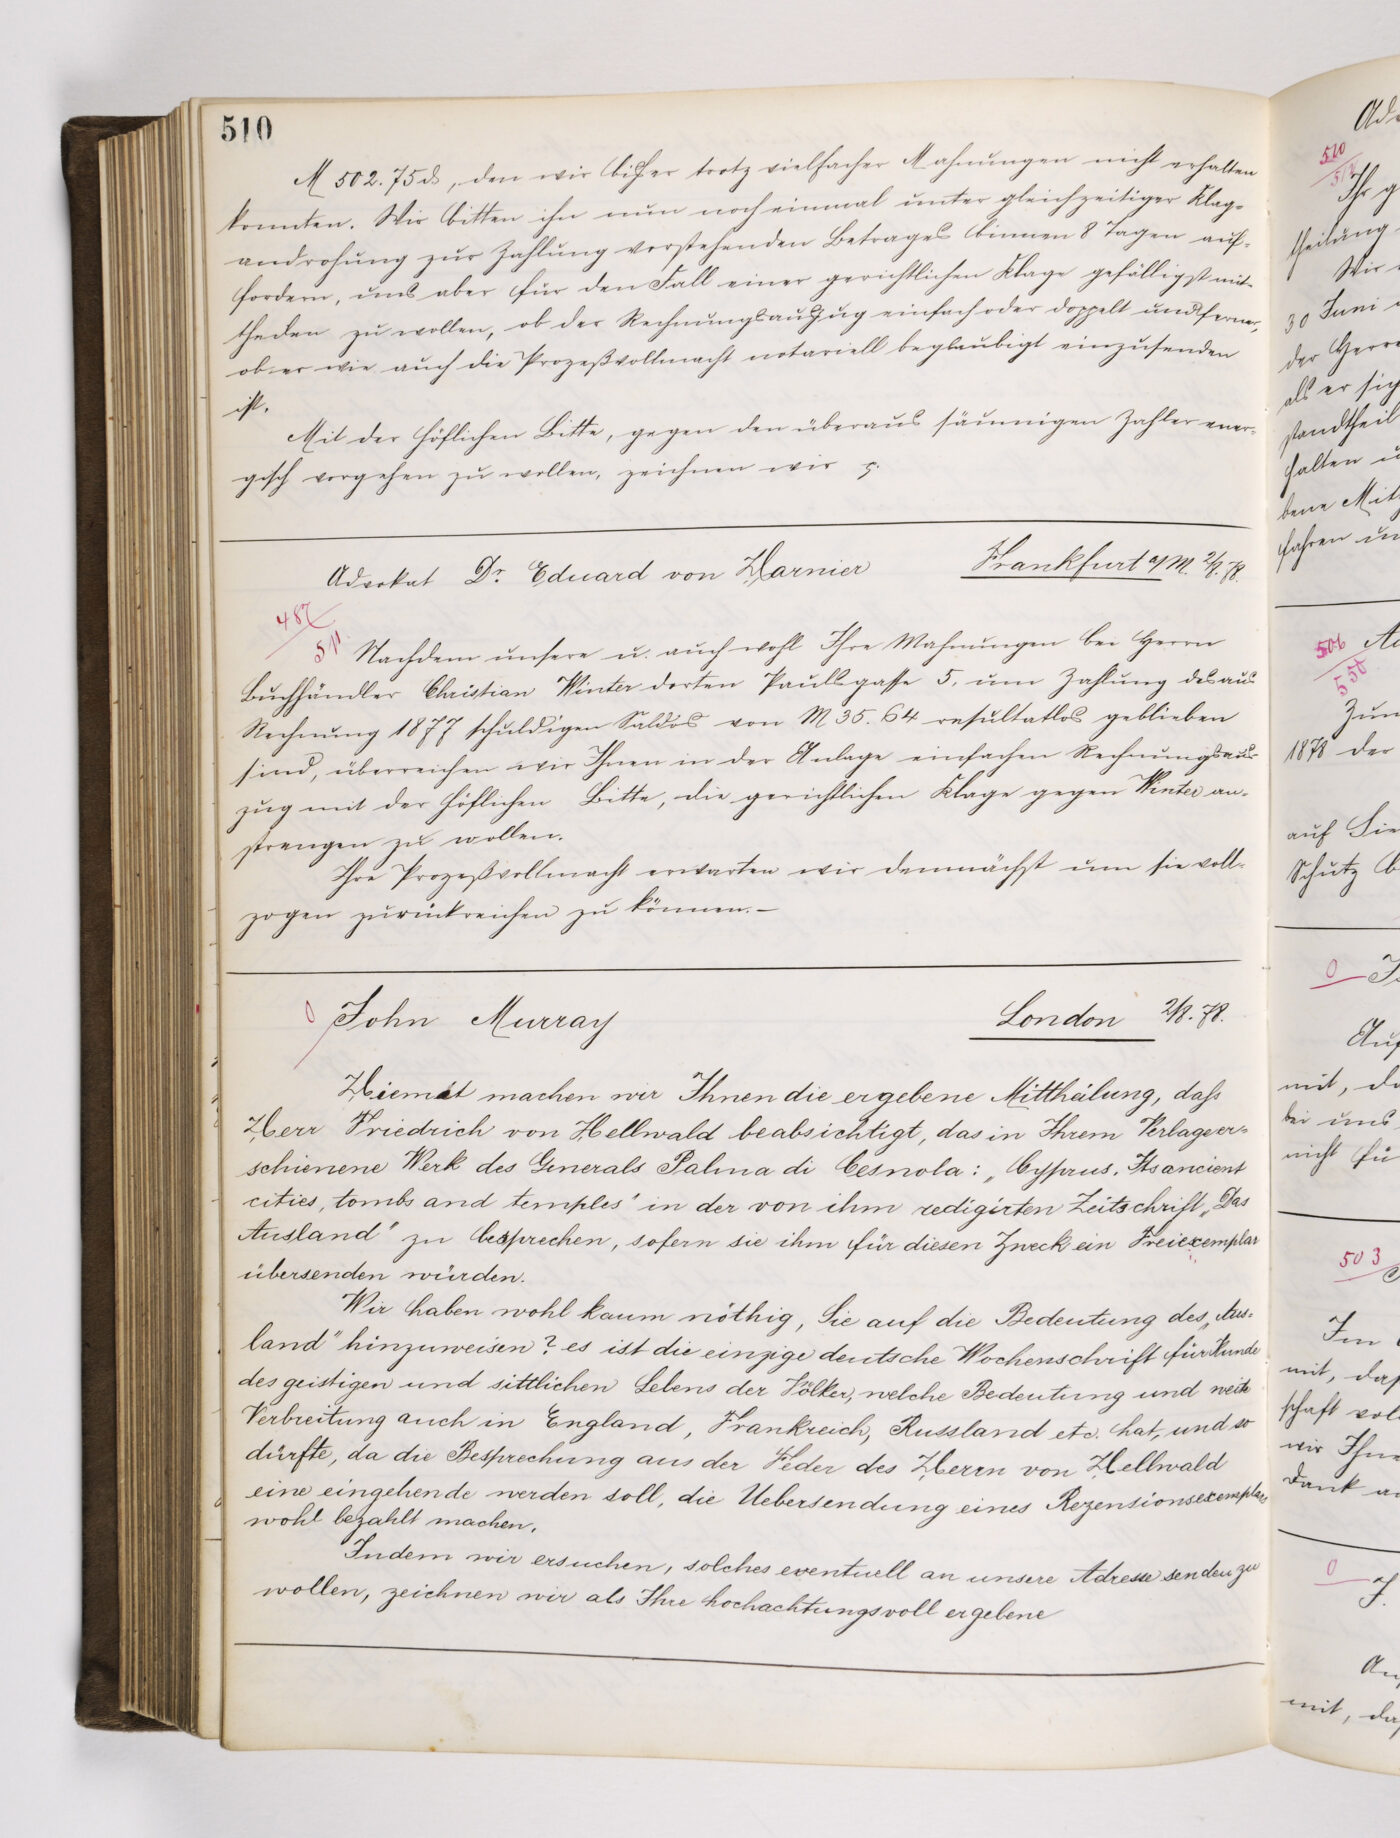 510
M 502.75 ₰, den wir bisher trotz vielfacher Mahnungen nicht erhalten
konnten. Wir bitten ihn nun noch einmal unter gleichzeitiger Klag-
androhung zur Zahlung vorstehenden Betrages binnen 8 Tagen auf-
fordern, uns aber für den Fall einer gerichtlichen Klage gefälligst mit-
theilen zu wollen, ob der Rechnungsauszug einfach oder doppelt und ferner,
ob er wie auch die Prozeßvollmacht notariell beglaubigt einzusenden
ist.
Mit der höflichen Bitte, gegen den überaus säumigen Zahler ener-
gisch vorgehen zu wollen, zeichnen wir
Advokat Dr. Eduard von Harnier Frankfurt a/M. 2/9. 78.
487
511
Nachdem unsere u. auch wohl Ihre Mahnungen bei Herrn
Buchhändler Christian Winter dorten Paulsgasse 5. um Zahlung des aus
Rechnung 1877 schuldigen Saldos von M 35.64 resultatlos geblieben
sind, überreichen wir Ihnen in der Anlage einfachen Rechnungsaus-
zug mit der höflichen Bitte, die gerichtlichen Klage gegen Winter an-
strengen zu wollen.
Ihre Prozeßvollmacht erwarten wir demnächst um sie voll-
zogen zurückreichen zu können. –
0 John Murray London 2/9. 78.
Hiemit machen wir Ihnen die ergebene Mittheilung, dass
Herr Friedrich von Hellwald beabsichtigt, das in Ihrem Verlage er-
schienene Werk des Generals Palma di Cesnola: „Cyprus. Its ancient
cities, tombs and temples" in der von ihm redigirten Zeitschrift „Das
Ausland" zu besprechen, sofern sie ihm für diesen Zweck ein Freiexemplar
übersenden würden.
Wir haben wohl kaum nöthig, Sie auf die Bedeutung des „Aus-
land" hinzuweisen? es ist die einzige deutsche Wochenschrift für Kunde
des geistigen und sittlichen Lebens der Völker, welche Bedeutung und weite
Verbreitung auch in England, Frankreich, Russland etc. hat, und so
dürfte, da die Besprechung aus der Feder des Herrn von Hellwald
eine eingehende werden soll, die Uebersendung eines Rezensionsexemplares
wohl bezahlt machen.
Indem wir ersuchen, solches eventuell an unsere Adresse senden zu
wollen, zeichnen wir als Ihre hochachtungsvoll ergebene
510
Ihr g
theilung
Wir
30 Juni
der Herre
als er sich
standtheil
halten u
bene Mit
fahren un
506
550
Zum
1878 der
auf Sie
Schutz b
0
Auf
mit, da
bei uns
nicht fü
503
Im
mit, daß
schaft vol
wir Ihne
Dank au
0
J.
mit, da